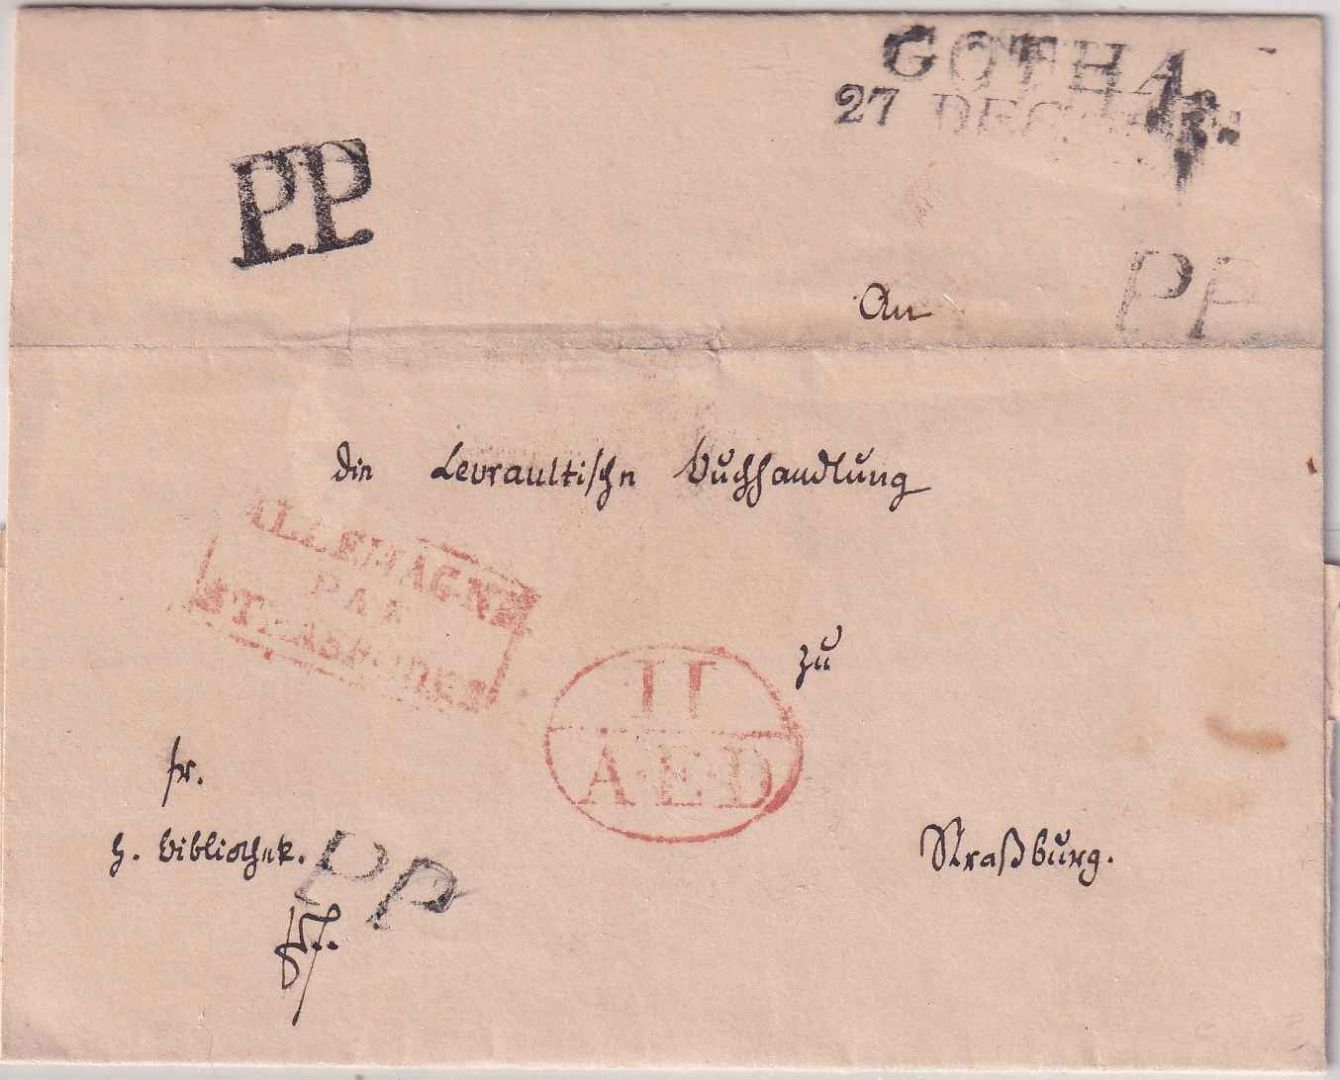 GOTHA
27 DEC
PP
PP
An
die Levraultische Buchhandlung
ALLEMAGNE
PAR
STRASBOURG
zu
11
A.E.D
fr.
H. Bibliothek.
Straßburg.
PP